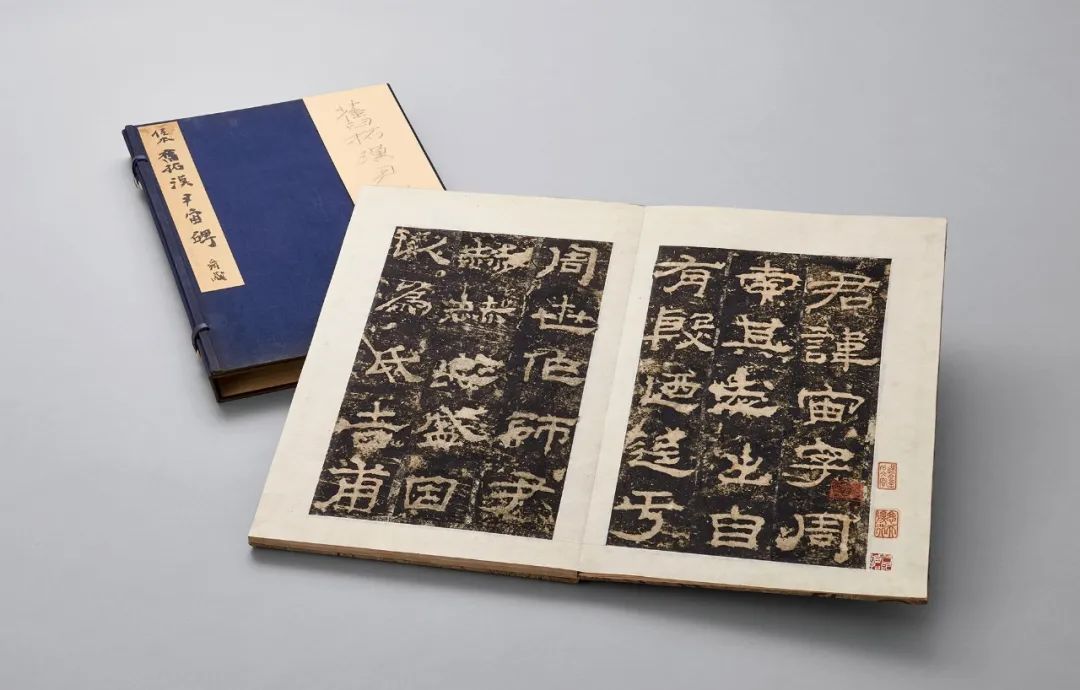 舊拓漢尹宙碑
舊拓漢尹
君諱宙字周
南其先出自
有殷迺迄于
周世作師尹
赫赫之盛因
以為氏吉甫